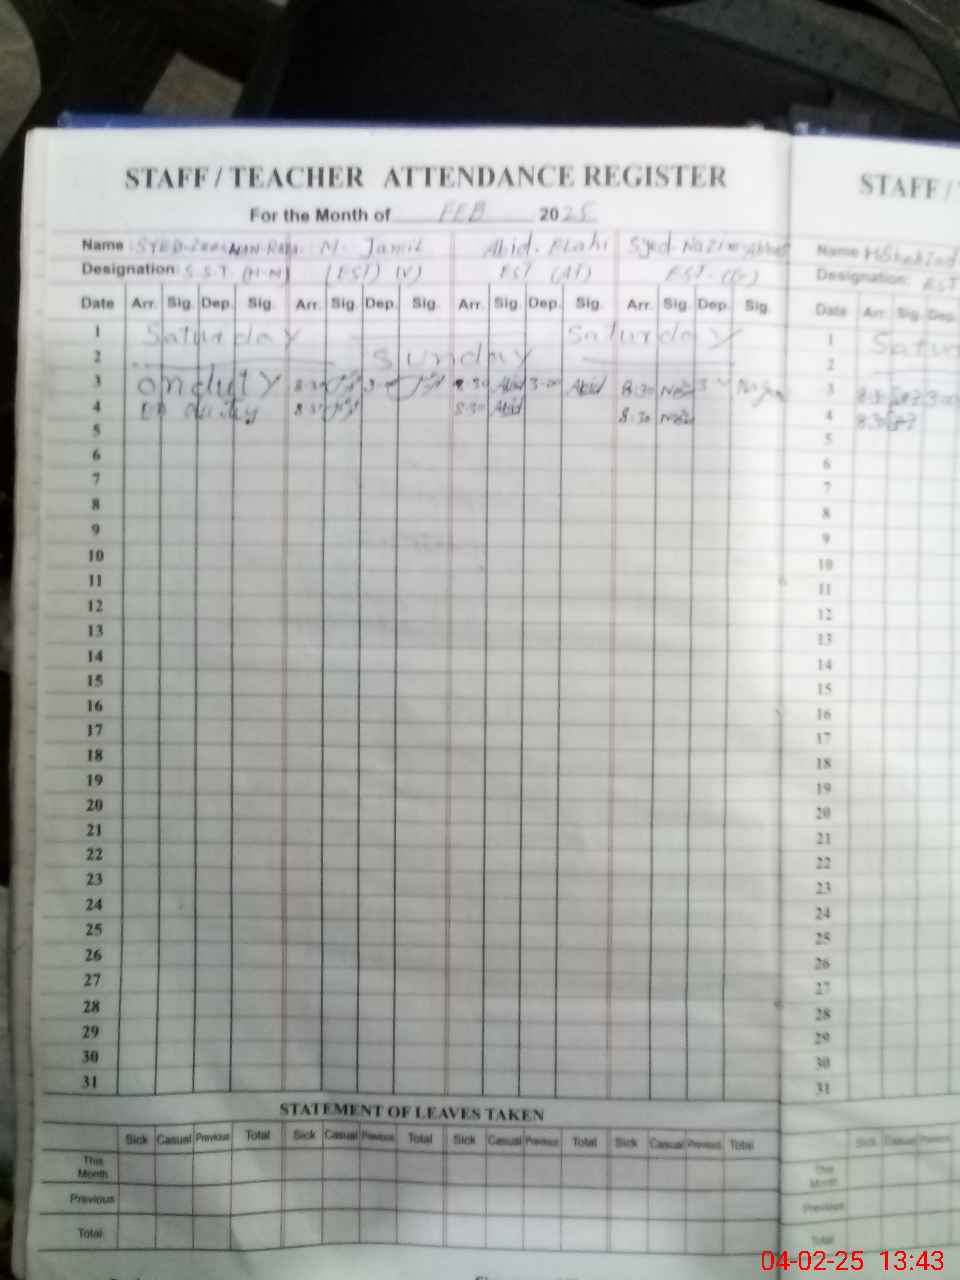 STAFF / TEACHER ATTENDANCE REGISTER
For the Month of FEB 2025
Name M. Jamil Abid. Elahi Syed. Nazim Abbas
Designation: S.S.T. (H-M) (EST) (V) EST (AT) EST. (G)
Date Arr. Sig. Dep. Sig. Arr. Sig. Dep. Sig. Arr. Sig. Dep. Sig. Arr. Sig. Dep. Sig.
1 Saturday Saturday
2 Sunday
3 onduty 8:30 3-00 8:30 Abid 3-00 Abid 8:30
4 on duity 8:30 8:30 Abid 8:30
5
6
7
8
9
10
11
12
13
14
15
16
17
18
19
20
21
22
23
24
25
26
27
28
29
30
31
STATEMENT OF LEAVES TAKEN
Sick Casual Previous Total Sick Casual Previous Total Sick Casual Previous Total Sick Casual Previous Total
This Month
Previous
Total
STAFF /
Name M.Shahzad
Designation: EST
Date Arr. Sig. Dep.
1 Satur
2
3 8:30 3-00
4 8:30
5
6
7
8
9
10
11
12
13
14
15
16
17
18
19
20
21
22
23
24
25
26
27
28
29
30
31
Sick Casual Previous
This Month
Previous
Total
04-02-25 13:43